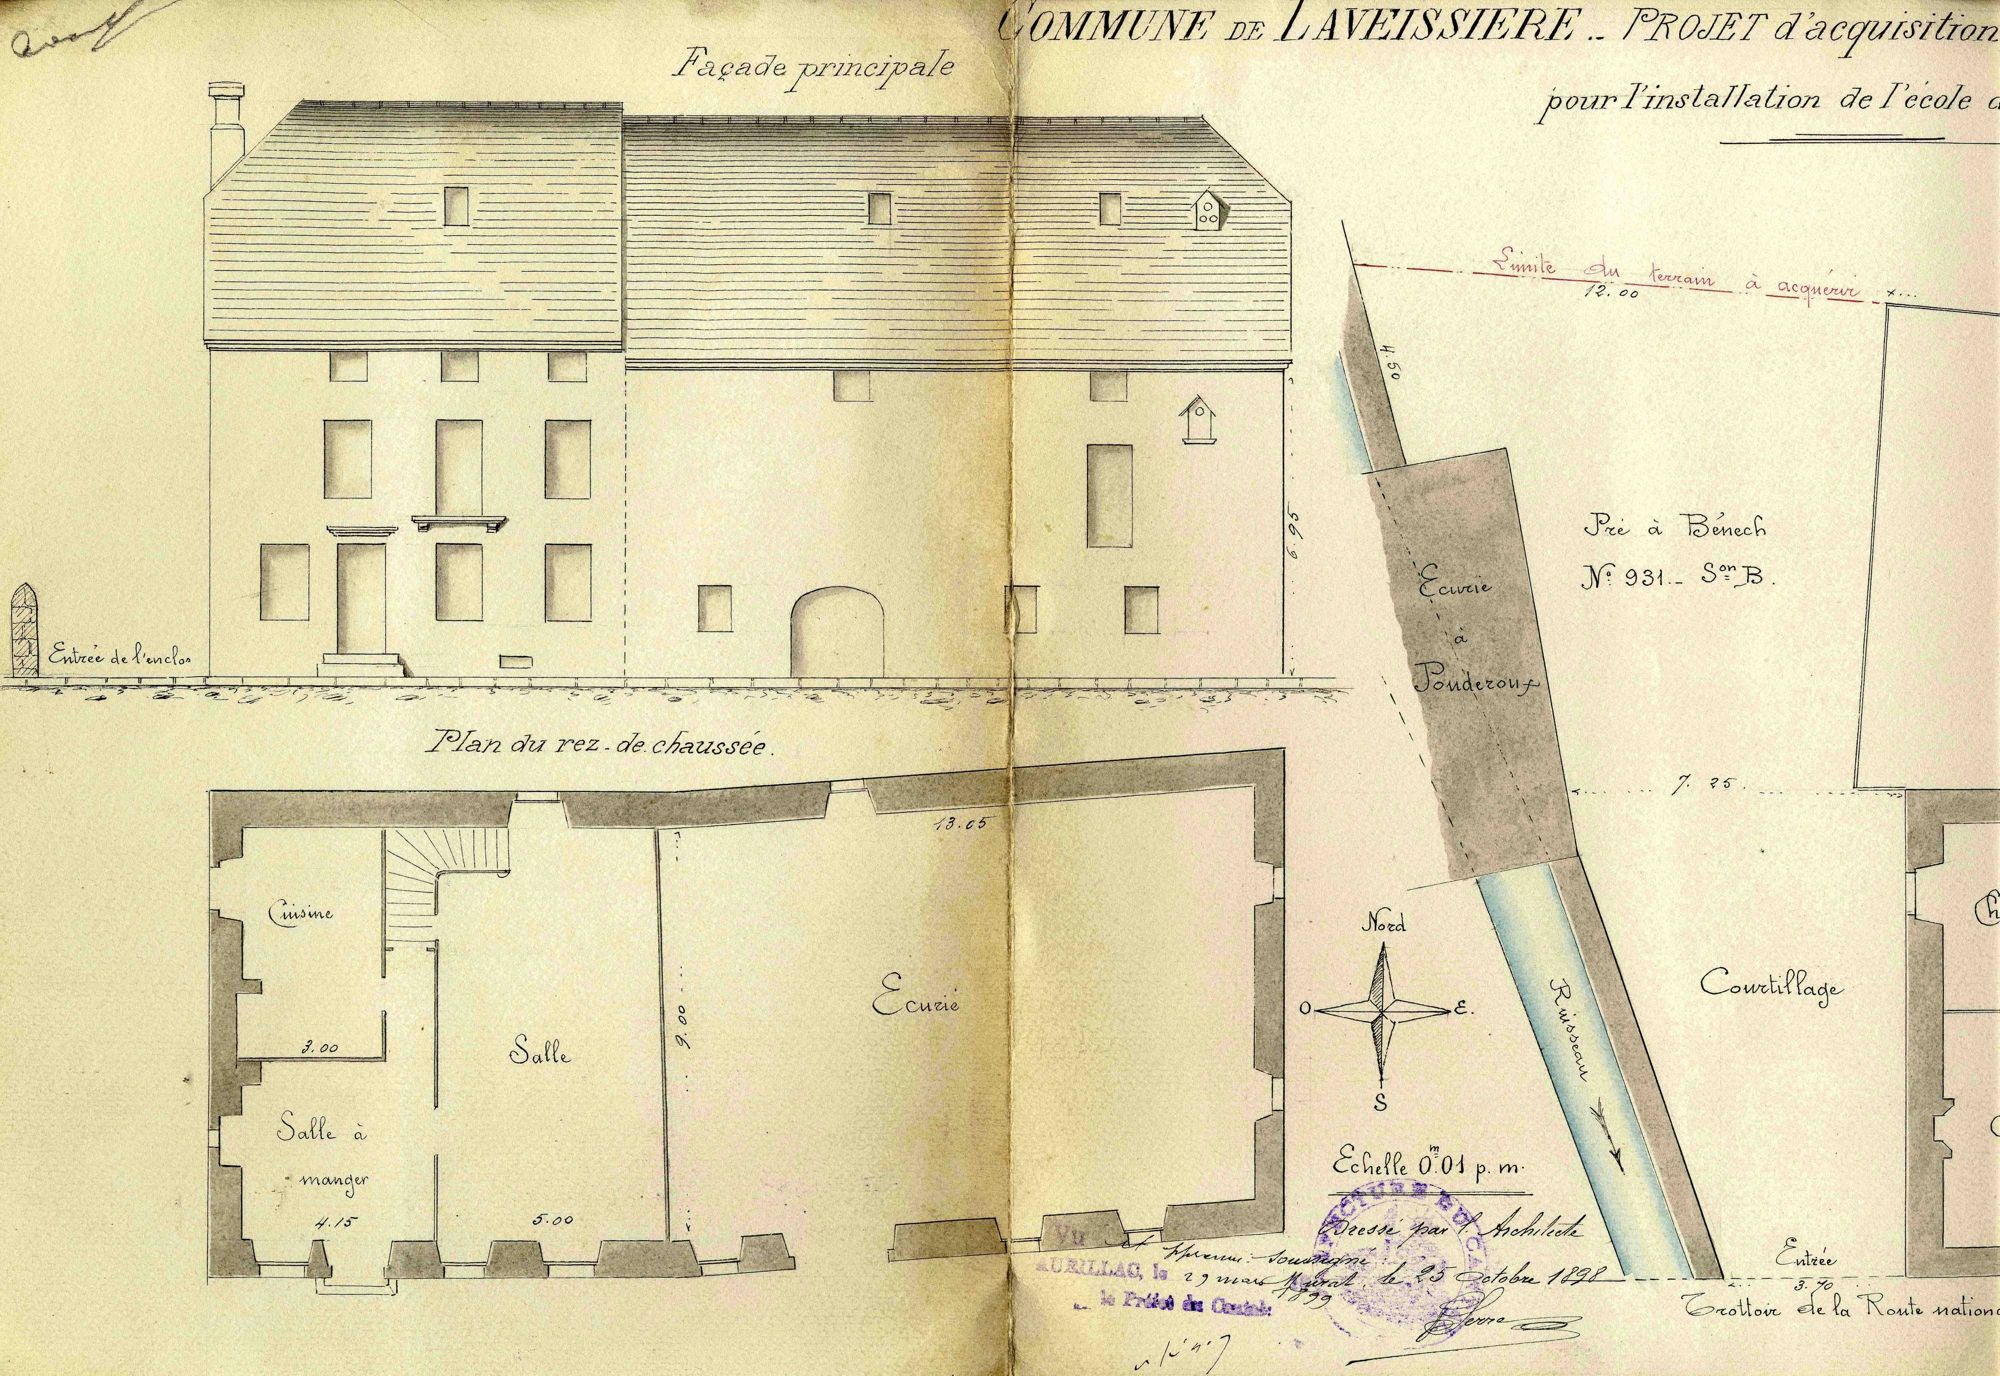 COMMUNE DE LAVEISSIERE .. PROJET d'acquisition
pour l'installation de l'école
Façade principale
Limite du terrain à acquérir
12.00
4.50
6.95
Pré à Bénech
N° 931.- Son B.
Ecurie
à
Pouderoux
Entrée de l'enclos
Plan du rez-de-chaussée.
7.25
13.05
Cuisine
Nord
O
E.
S
Courtillage
Ruisseau
Ecurie
9.00
3.00
Salle
Salle à
manger
4.15
5.00
Echelle 0m.01 p. m.
Dressé par l'Architecte
Murat, le 25 Octobre 1898
Serre
Vu et
AURILLAC, le 29 mars 1899
le Préfet du Cantal
Entrée
3.70
Trottoir de la Route